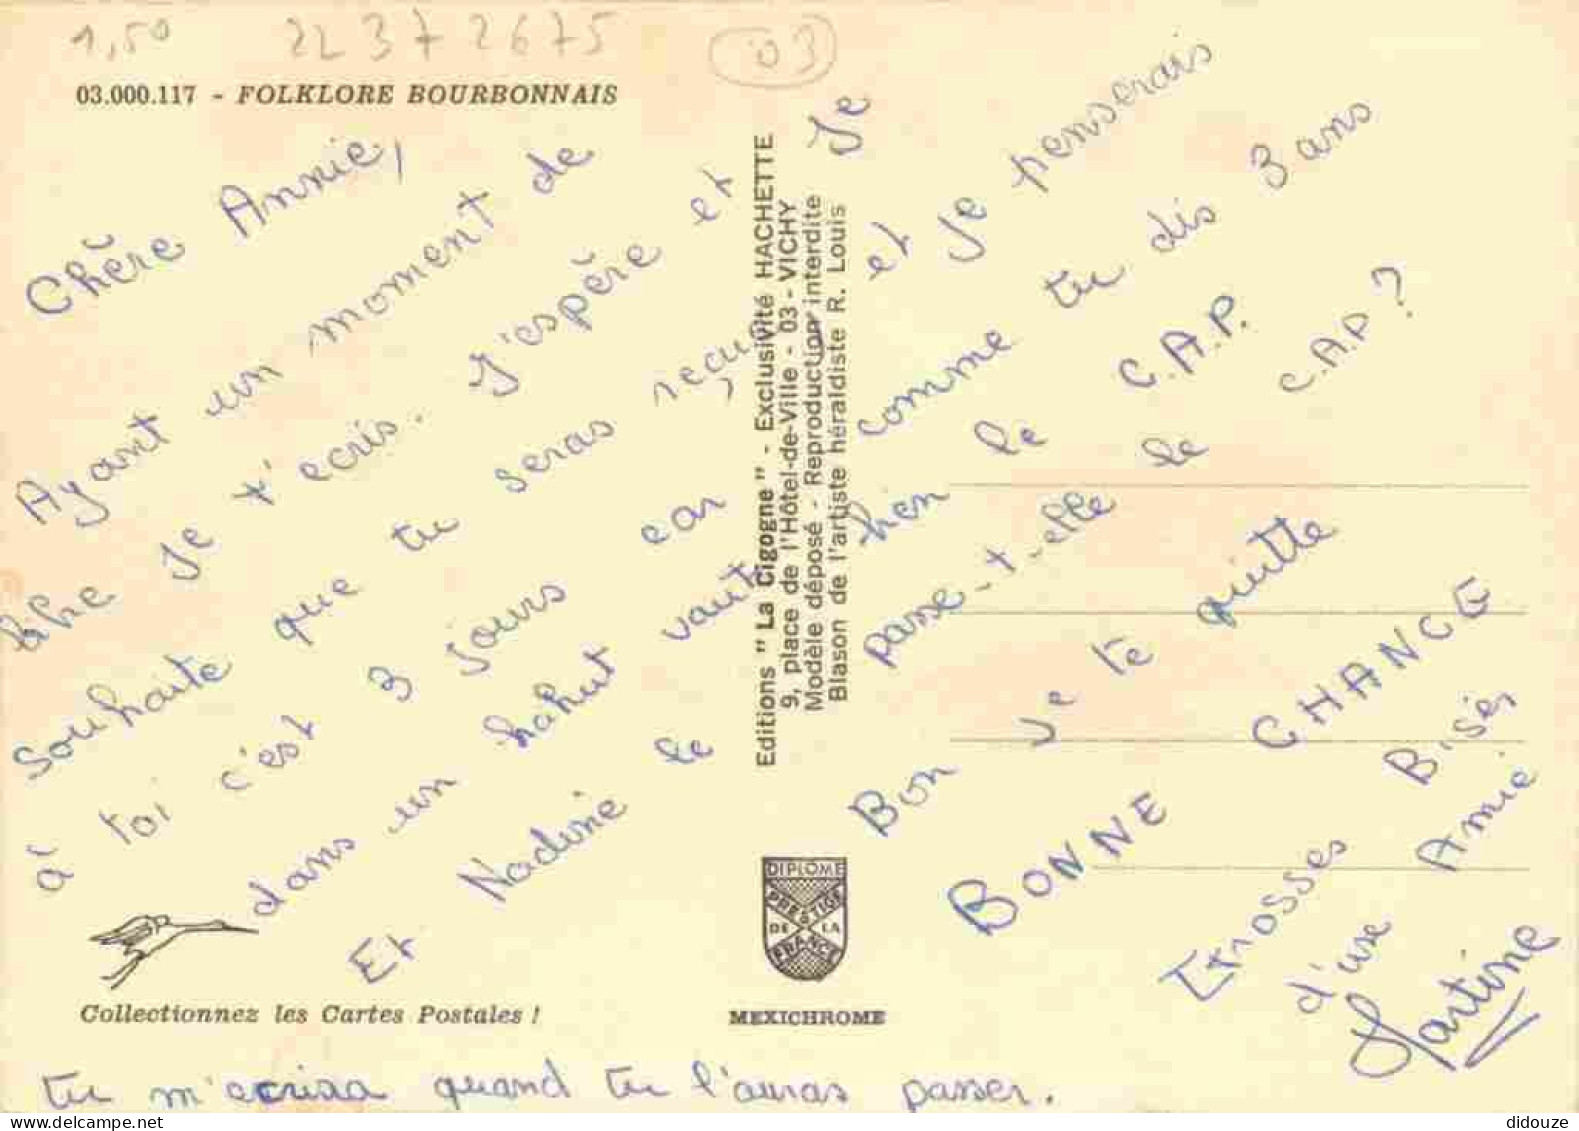 1,50 22372675 03
03.000.117 - FOLKLORE BOURBONNAIS
Chère Annie,
Ayant un moment de
libre Je t'ecris. J'espère et Je
souhaite que tu seras reçue et Je penserais
à toi c'est 3 jours car comme tu dis 3 ans
dans un bahut vaut bien le C.A.P.
Et Nadine le passe-t-elle le C.A.P?
Bon Je te quitte
BONNE CHANCE
Grosses Bises
d'une Amie
Martine
tu m'ecrira quand tu l'auras passer.
Editions " La Cigogne " - Exclusivité HACHETTE
9, place de l'Hôtel-de-Ville - 03 - VICHY
Modèle déposé - Reproduction interdite
Blason de l'artiste héraldiste R. Louis
DIPLOME
PRESTIGE
DE LA
FRANCE
Collectionnez les Cartes Postales !
MEXICHROME
didouze